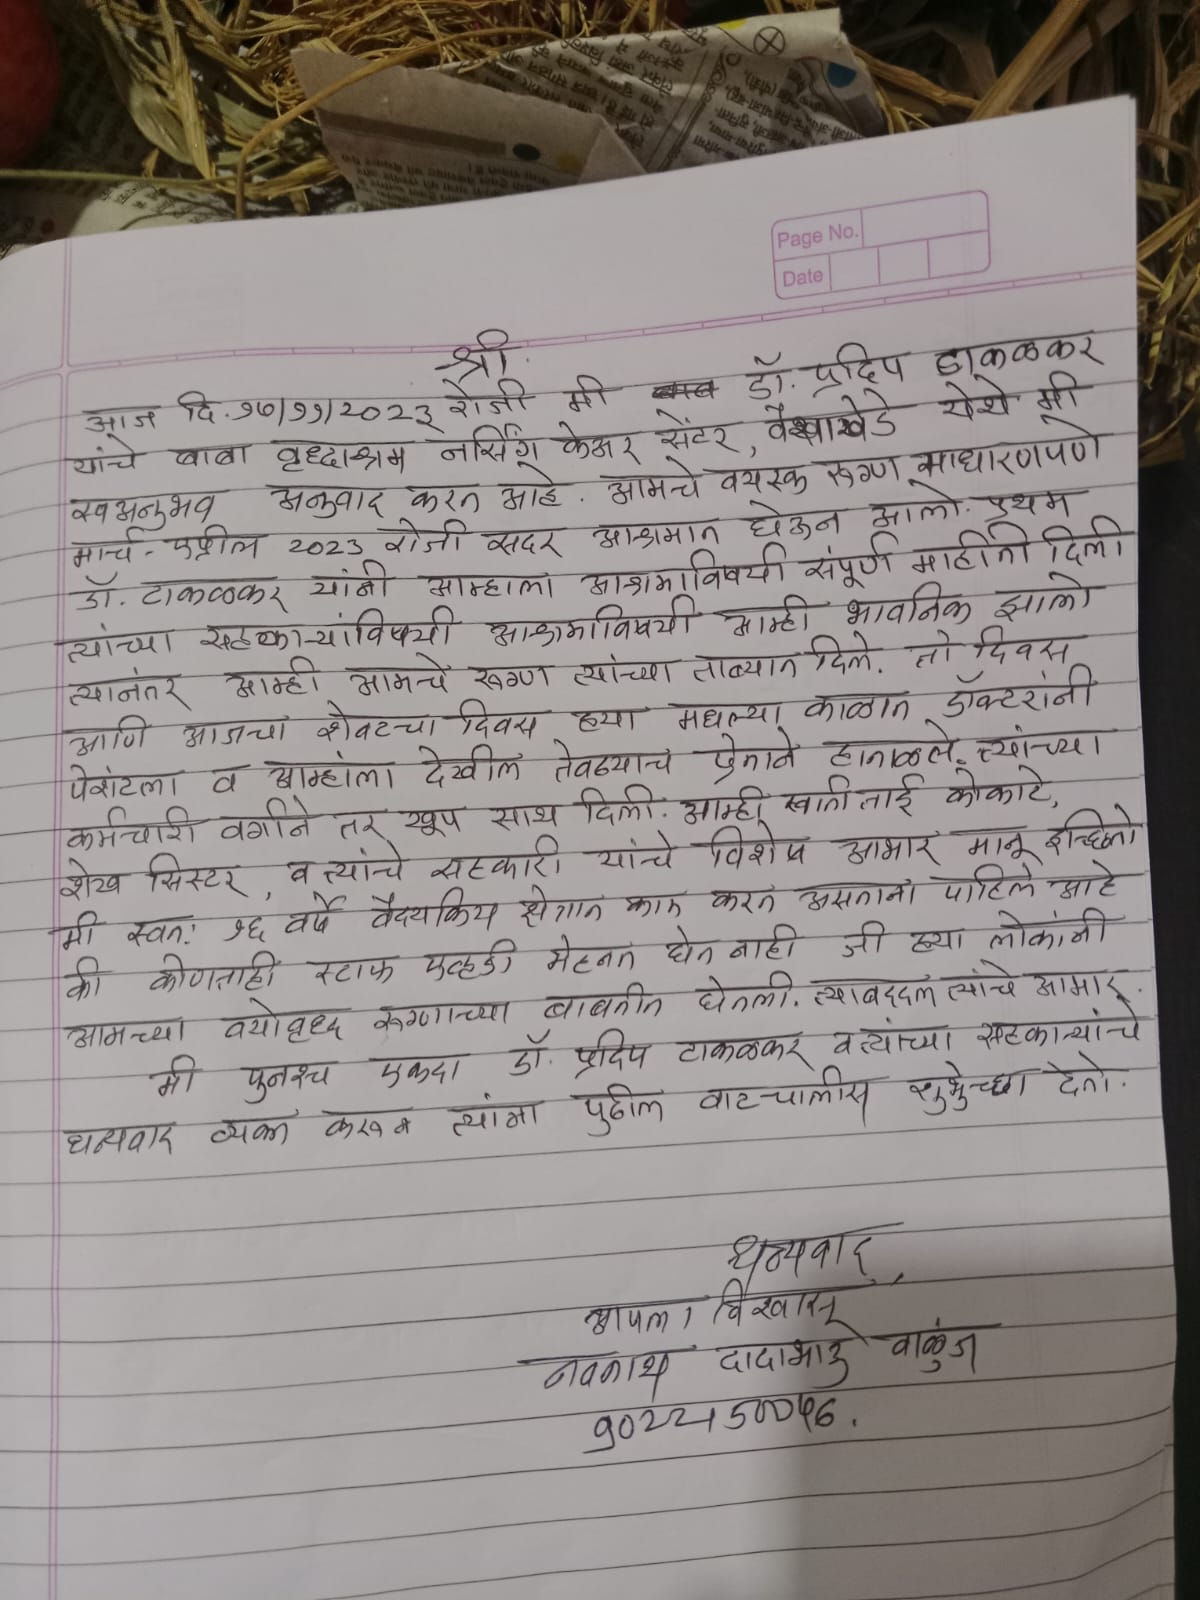 Page No.
Date
श्री.
आज दि. १७/११/२०२३ रोजी मी डॉ. प्रदिप टाकळकर
यांचे बाबा वृध्दाश्रम नर्सिंग केअर सेंटर, येथे मी
स्वअनुभव अनुवाद करत आहे. आमचे वयस्क रूग्ण साधारणपणे
मार्च - एप्रील २०२३ रोजी सदर आश्रमात घेऊन आलो. प्रथम
डॉ. टाकळकर यांनी आम्हाला आश्रमाविषयी संपूर्ण माहीती दिली
त्यांच्या सहकाऱ्यांविषयी आश्रमाविषयी आम्ही भावनिक झालो
त्यानंतर आम्ही आमचे रूग्ण त्यांच्या ताब्यात दिले. तो दिवस
आणि आजचा शेवटचा दिवस ह्या मधल्या काळात डॉक्टरांनी
पेशंटला व आम्हांला देखील तेवढ्याच प्रेमाने हाताळले. त्यांच्या
कर्मचारी वर्गाने तर खूप साथ दिली. आम्ही स्वातीताई कोकाटे,
शेख सिस्टर, व त्यांचे सहकारी यांचे विशेष आभार मानू इच्छितो
मी स्वतः १६ वर्षे वैदयकिय क्षेत्रात काम करत असताना पाहिले आहे
की कोणताही स्टाफ एव्हडी मेहनत घेत नाही जी ह्या लोकांनी
आमच्या वयोवृध्द रूग्णाच्या बाबतीत घेतली. त्याबद्दल त्यांचे आभार.
मी पुनश्च एकदा डॉ. प्रदिप टाकळकर व त्यांच्या सहकाऱ्यांचे
धन्यवाद व्यक्त करून त्यांना पुढील वाटचालीस शुभेच्छा देतो.
धन्यवाद,
आपला विश्वासू
नवनाथ दादाभाऊ वाळुंज